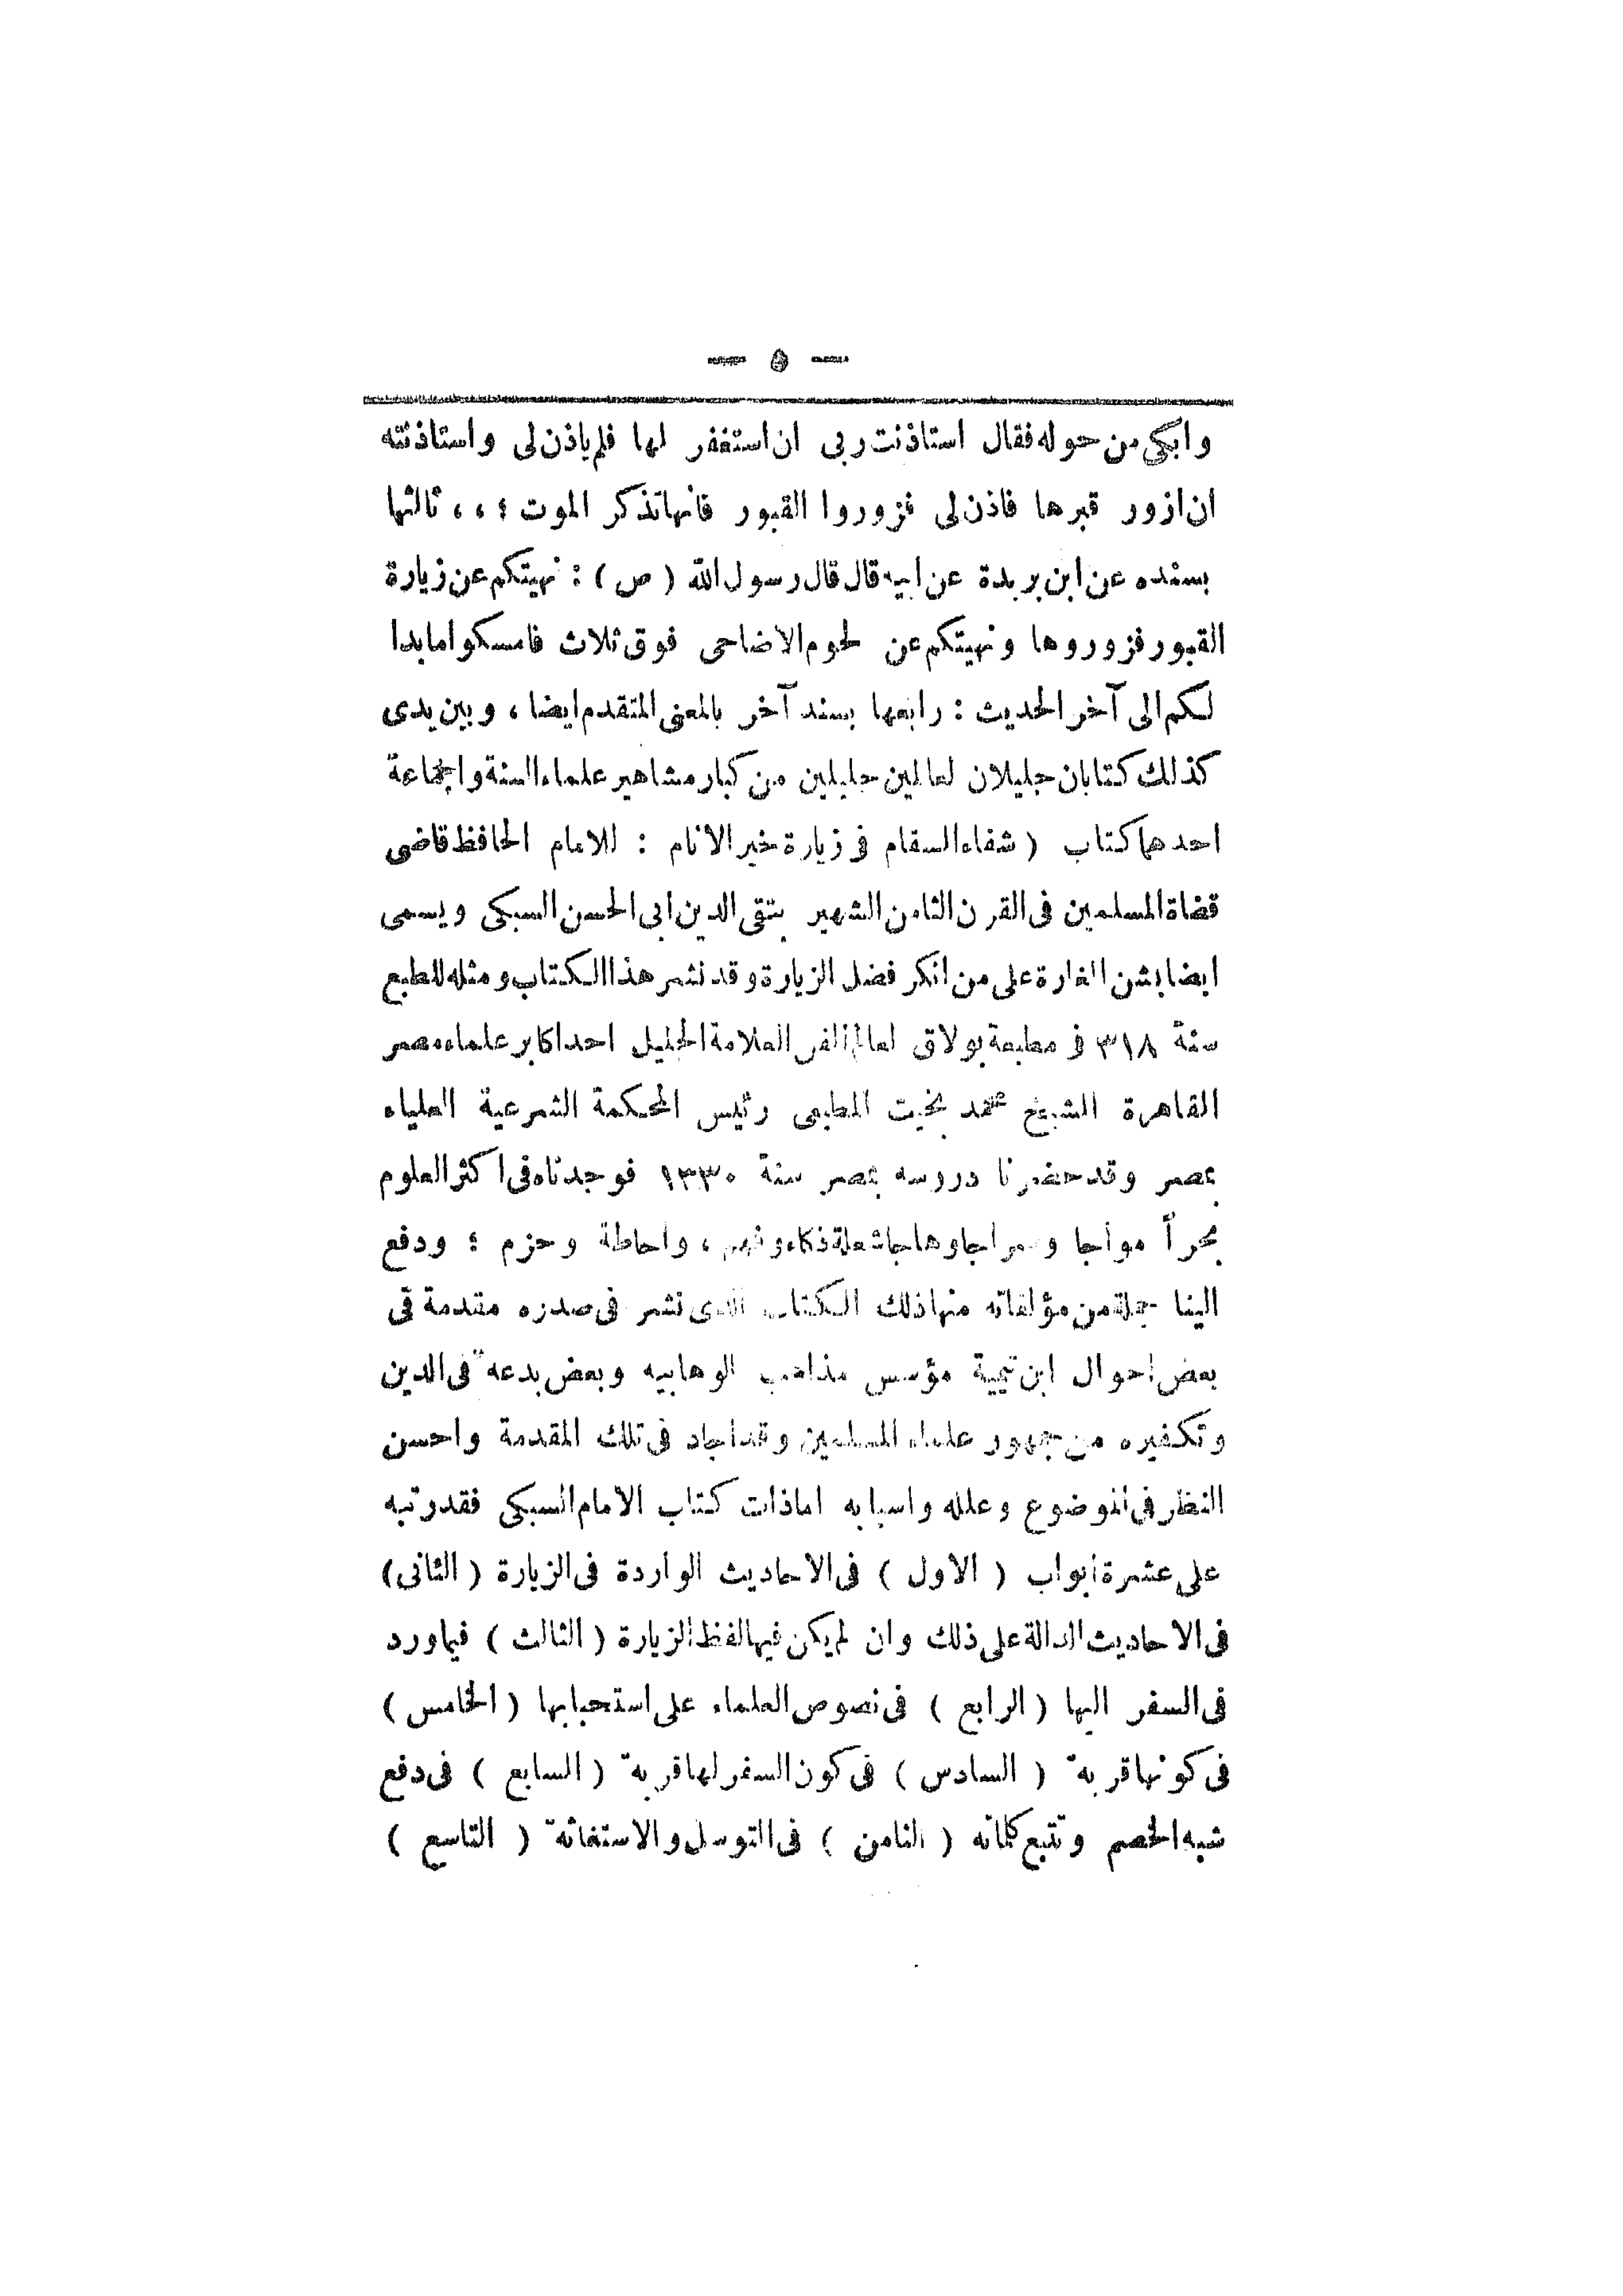 — ٥ —
وابكى من حوله فقال استاذنت ربى ان استغفر لها فلم ياذن لى واستاذنته
ان ازور قبرها فاذن لى فزوروا القبور فانها تذكر الموت ؛ ، ، ثالثها
بسنده عن ابن بريدة عن ابيه قال قال رسول الله ( ص ) : نهيتكم عن زيارة
القبور فزوروها ونهيتكم عن لحوم الاضاحى فوق ثلاث فامسكوا ما بدا
لكم الى آخر الحديث : رابعها بسند آخر بالمعنى المتقدم ايضا ، وبين يدى
كذلك كتابان جليلان لعالمين جليلين من كبار مشاهير علماء السنة والجماعة
احدهما كتاب ( شفاء السقام فى زيارة خير الانام : للامام الحافظ قاضى
قضاة المسلمين فى القرن الثامن الشهير بتقى الدين ابى الحسن السبكى ويسمى
ايضا بشن الغارة على من انكر فضل الزيارة وقد نشر هذا الكتاب ومثله للطبع
سنة ٣١٨ فى مطبعة بولاق العلامة الجليل احد اكابر علماء مصر
القاهرة الشيخ محمد بخيت المطيعى رئيس المحكمة الشرعية العلياء
بمصر وقد حضرنا دروسه بمصر سنة ١٣٣٠ فوجدناه فى اكثر العلوم
بحراً مواجا وسراجا وهاجا شعلة ذكاء وفهم ، واحاطة وحزم ؛ ودفع
الينا جملة من مؤلفاته منها ذلك الكتاب الذى نشر فى صدره مقدمة فى
بعض احوال ابن تيمية مؤسس مذاهب الوهابيه وبعض بدعه فى الدين
وتكفيره من جمهور علماء المسلمين وقد اجاد فى تلك المقدمة واحسن
النظر فى الموضوع وعلله واسبابه اما ذات كتاب الامام السبكى فقد رتبه
على عشرة ابواب ( الاول ) فى الاحاديث الواردة فى الزيارة ( الثانى )
فى الاحاديث الدالة على ذلك وان لم يكن فيها لفظ الزيارة ( الثالث ) فيما ورد
فى السفر اليها ( الرابع ) فى نصوص العلماء على استحبابها ( الخامس )
فى كونها قربة ( السادس ) فى كون السفر لها قربة ( السابع ) فى دفع
شبه الخصم وتتبع كلماته ( الثامن ) فى التوسل والاستغاثة ( التاسع )